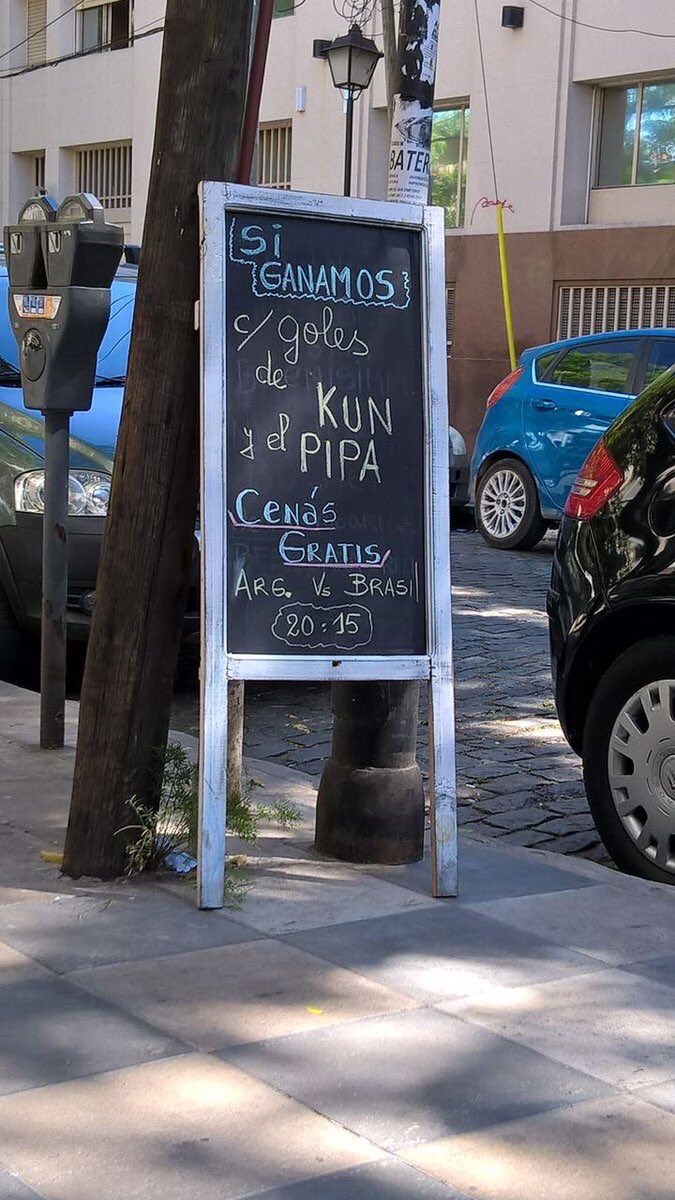 Si
GANAMOS
c/ goles
de
KUN
y el
PIPA
Cenás
GRATIS
ARG. Vs BRASIL
20:15
BATER